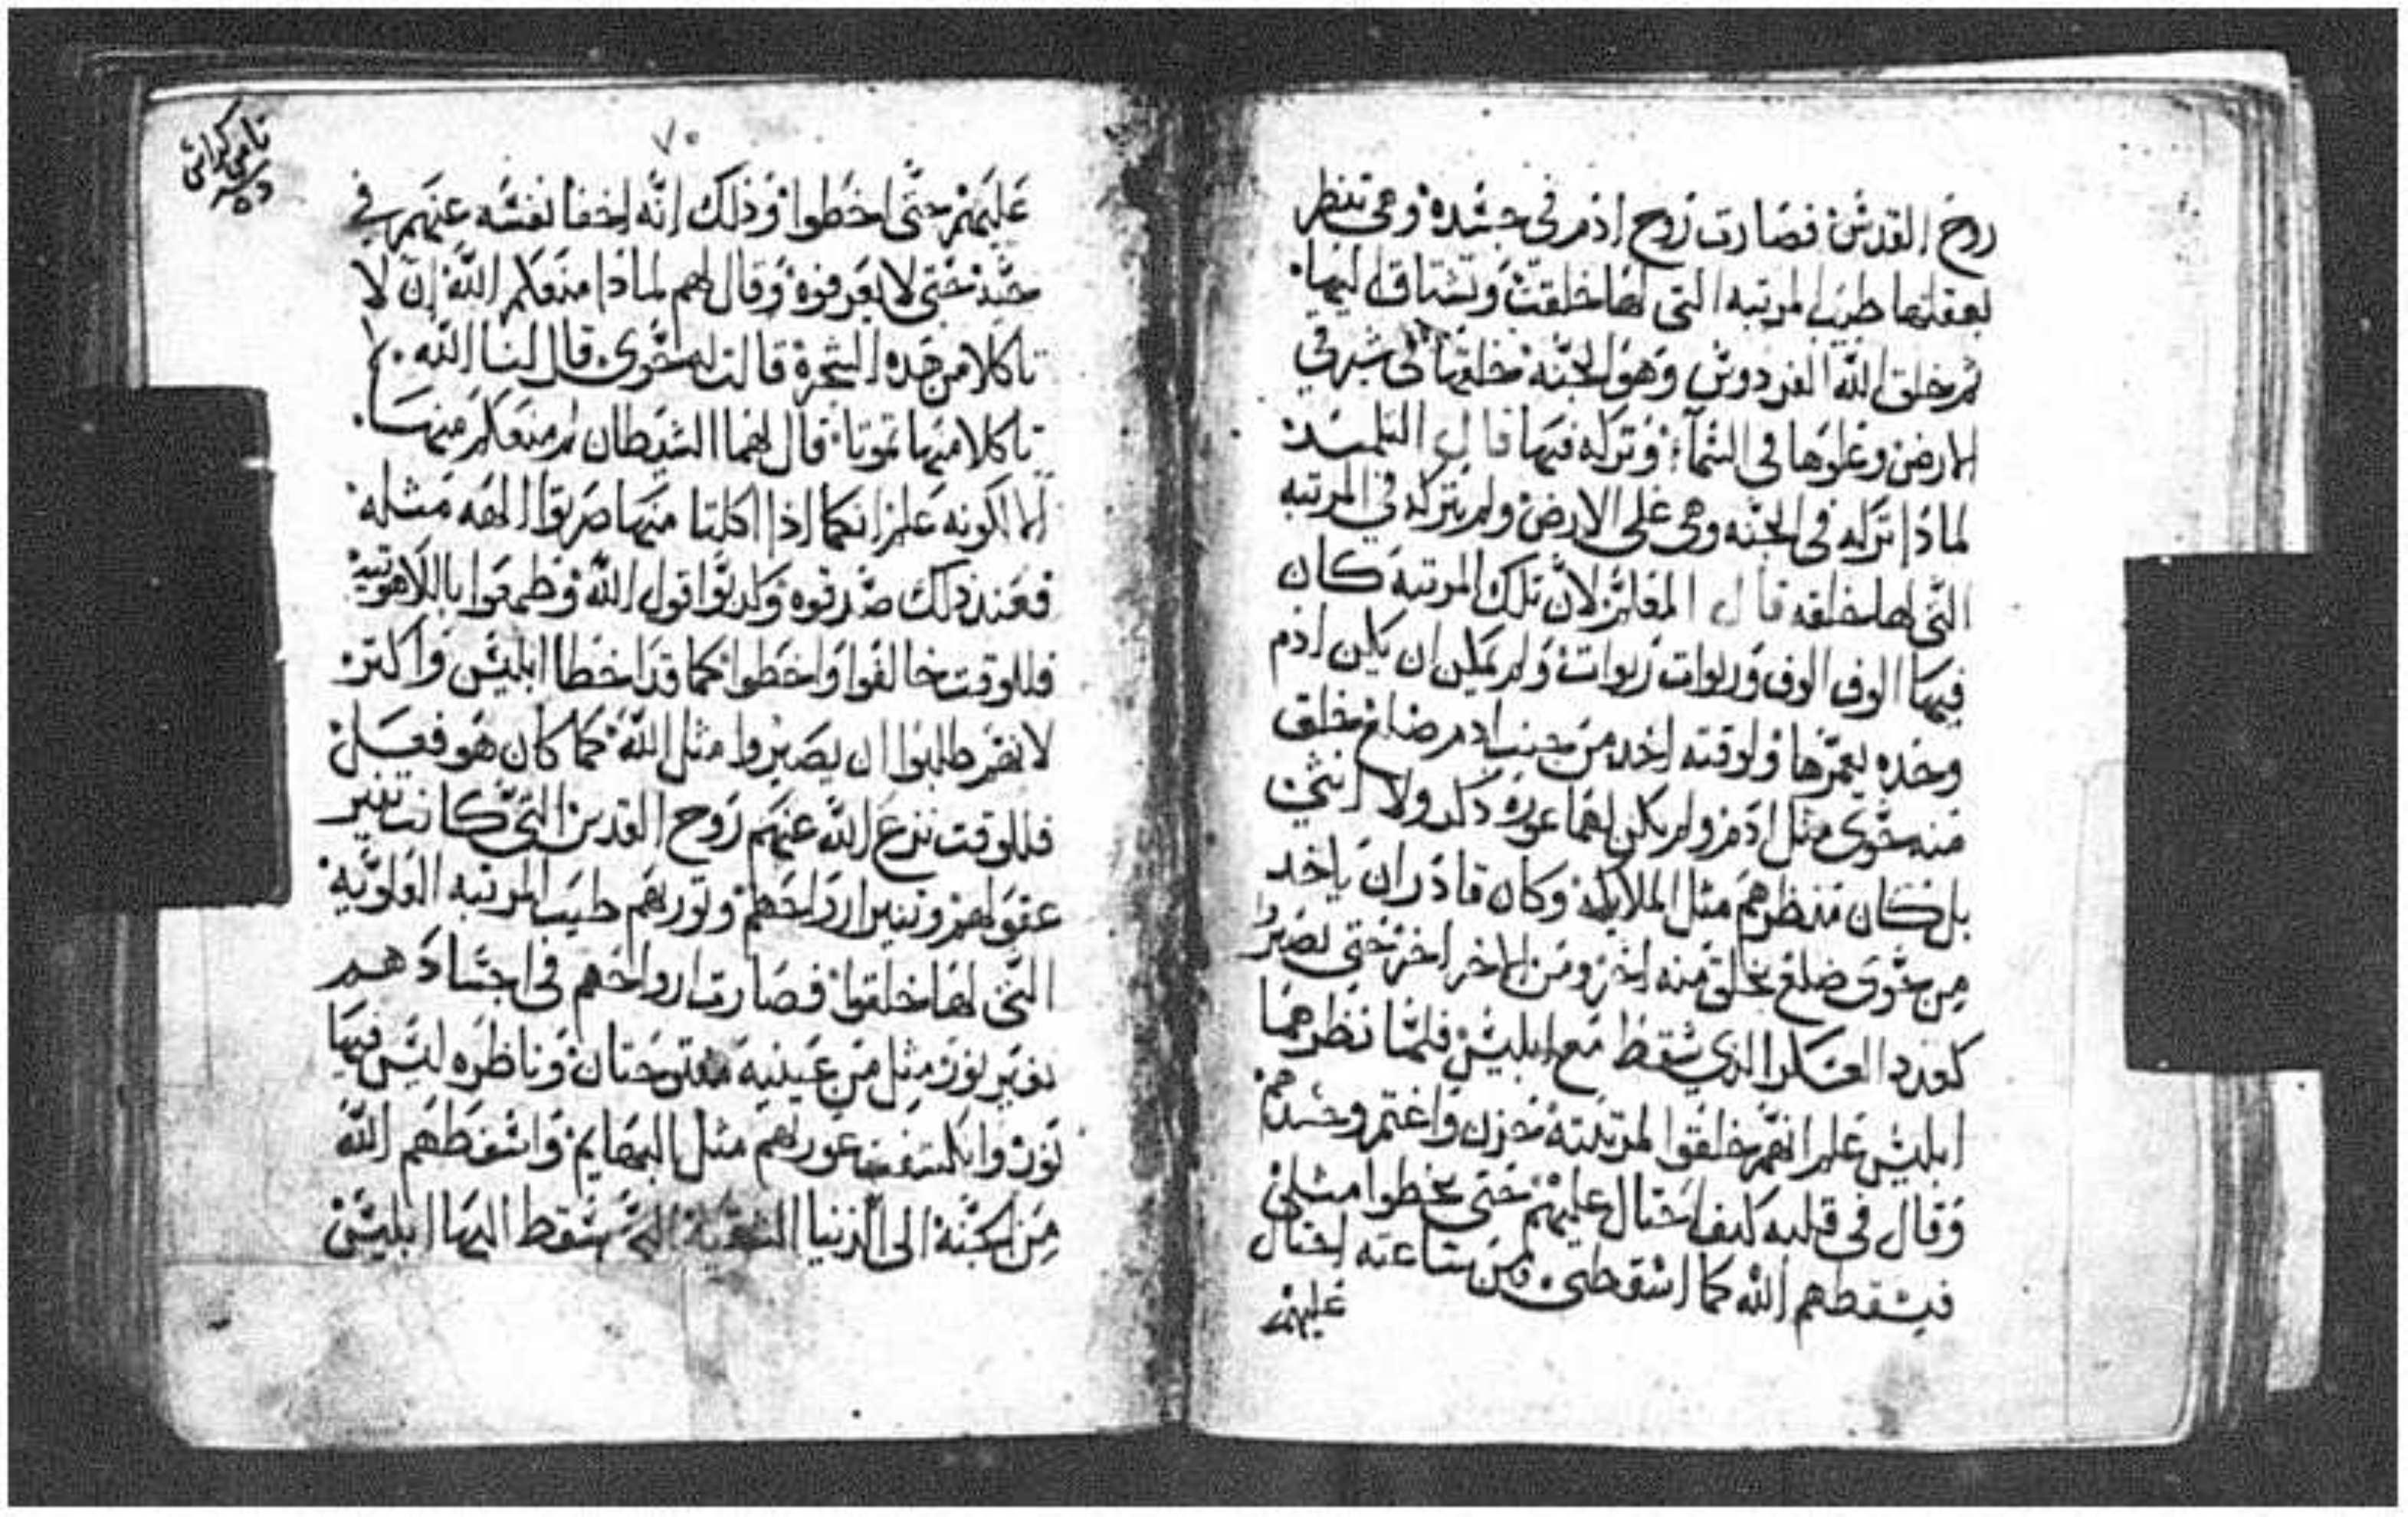 روح القدس فصارت روح ادم في جسده وهي تنظر
بعقلها طيب المرتبه التي لها خلقت وتشتاق اليها.
ثم خلق الله الفردوس وهو الجنه خلقها في شرقي
الارض وعلوها في السماء وتركه فيها قال التلميد
لماذا تركه في الجنه وهي على الارض ولم يتركه في المرتبه
التي لها خلقه قال المعلم لان تلك المرتبه كان
فيها الوف الوف وربوات ربوات ولم يمكن ان يكن ادم
وحده يعمرها ولوقته اخد من جنب ادم ضلع خلق
منه حوى مثل ادم ولم يكن لهما عوره دكر ولا انثى
بل كان منظرهم مثل الملايكه وكان قادر ان ياخد
من حوى ضلع يخلق منه اخر ومن الاخر اخر حتى يصيروا
كعدد العسكر الدي سقط مع ابليس فلما نظرهما
ابليس علم انهم خلقوا لمرتبته حزن واغتم وحسدهم
وقال في قلبه كيف احتال عليهم حتى يخطوا مثلي
فيسقطهم الله كما اسقطني. ومن ساعته احتال
عليهم
٧٠
عليهم حتى اخطوا ودلك انه اخفا نفسه عنهم في
حتى لا يعرفوه وقال لهم لماذا منعكم الله ان لا
تاكلا من هده الشجرة قالت له حوى قال لنا الله.
تاكلا منها تموتا قال لهما الشيطان لم منعكم منها.
الا لكونه علم انكما اذا اكلتما منها صرتوا الهه مثله
فعند دلك صدقوه وكدبوا قول الله وطمعوا باللاهوتيه
فللوقت خالفوا واخطوا كما قد اخطا ابليس واكتر
لانهم طلبوا ان يصيروا مثل الله كما كان هو فعل
فللوقت نزع الله عنهم روح القدس التي كانت تنير
عقولهم وتنير ارواحهم وتوريهم طيب المرتبه العلويه
التي لها خلقوا فصارت ارواحهم في اجسادهم
بغير نور مثل من عينيه مفتوحتان وناظره ليس فيها
نور وانكشفت عوراتهم مثل البهايم واسقطهم الله
من الجنة الى الدنيا الشقية التي سقط اليها ابليس